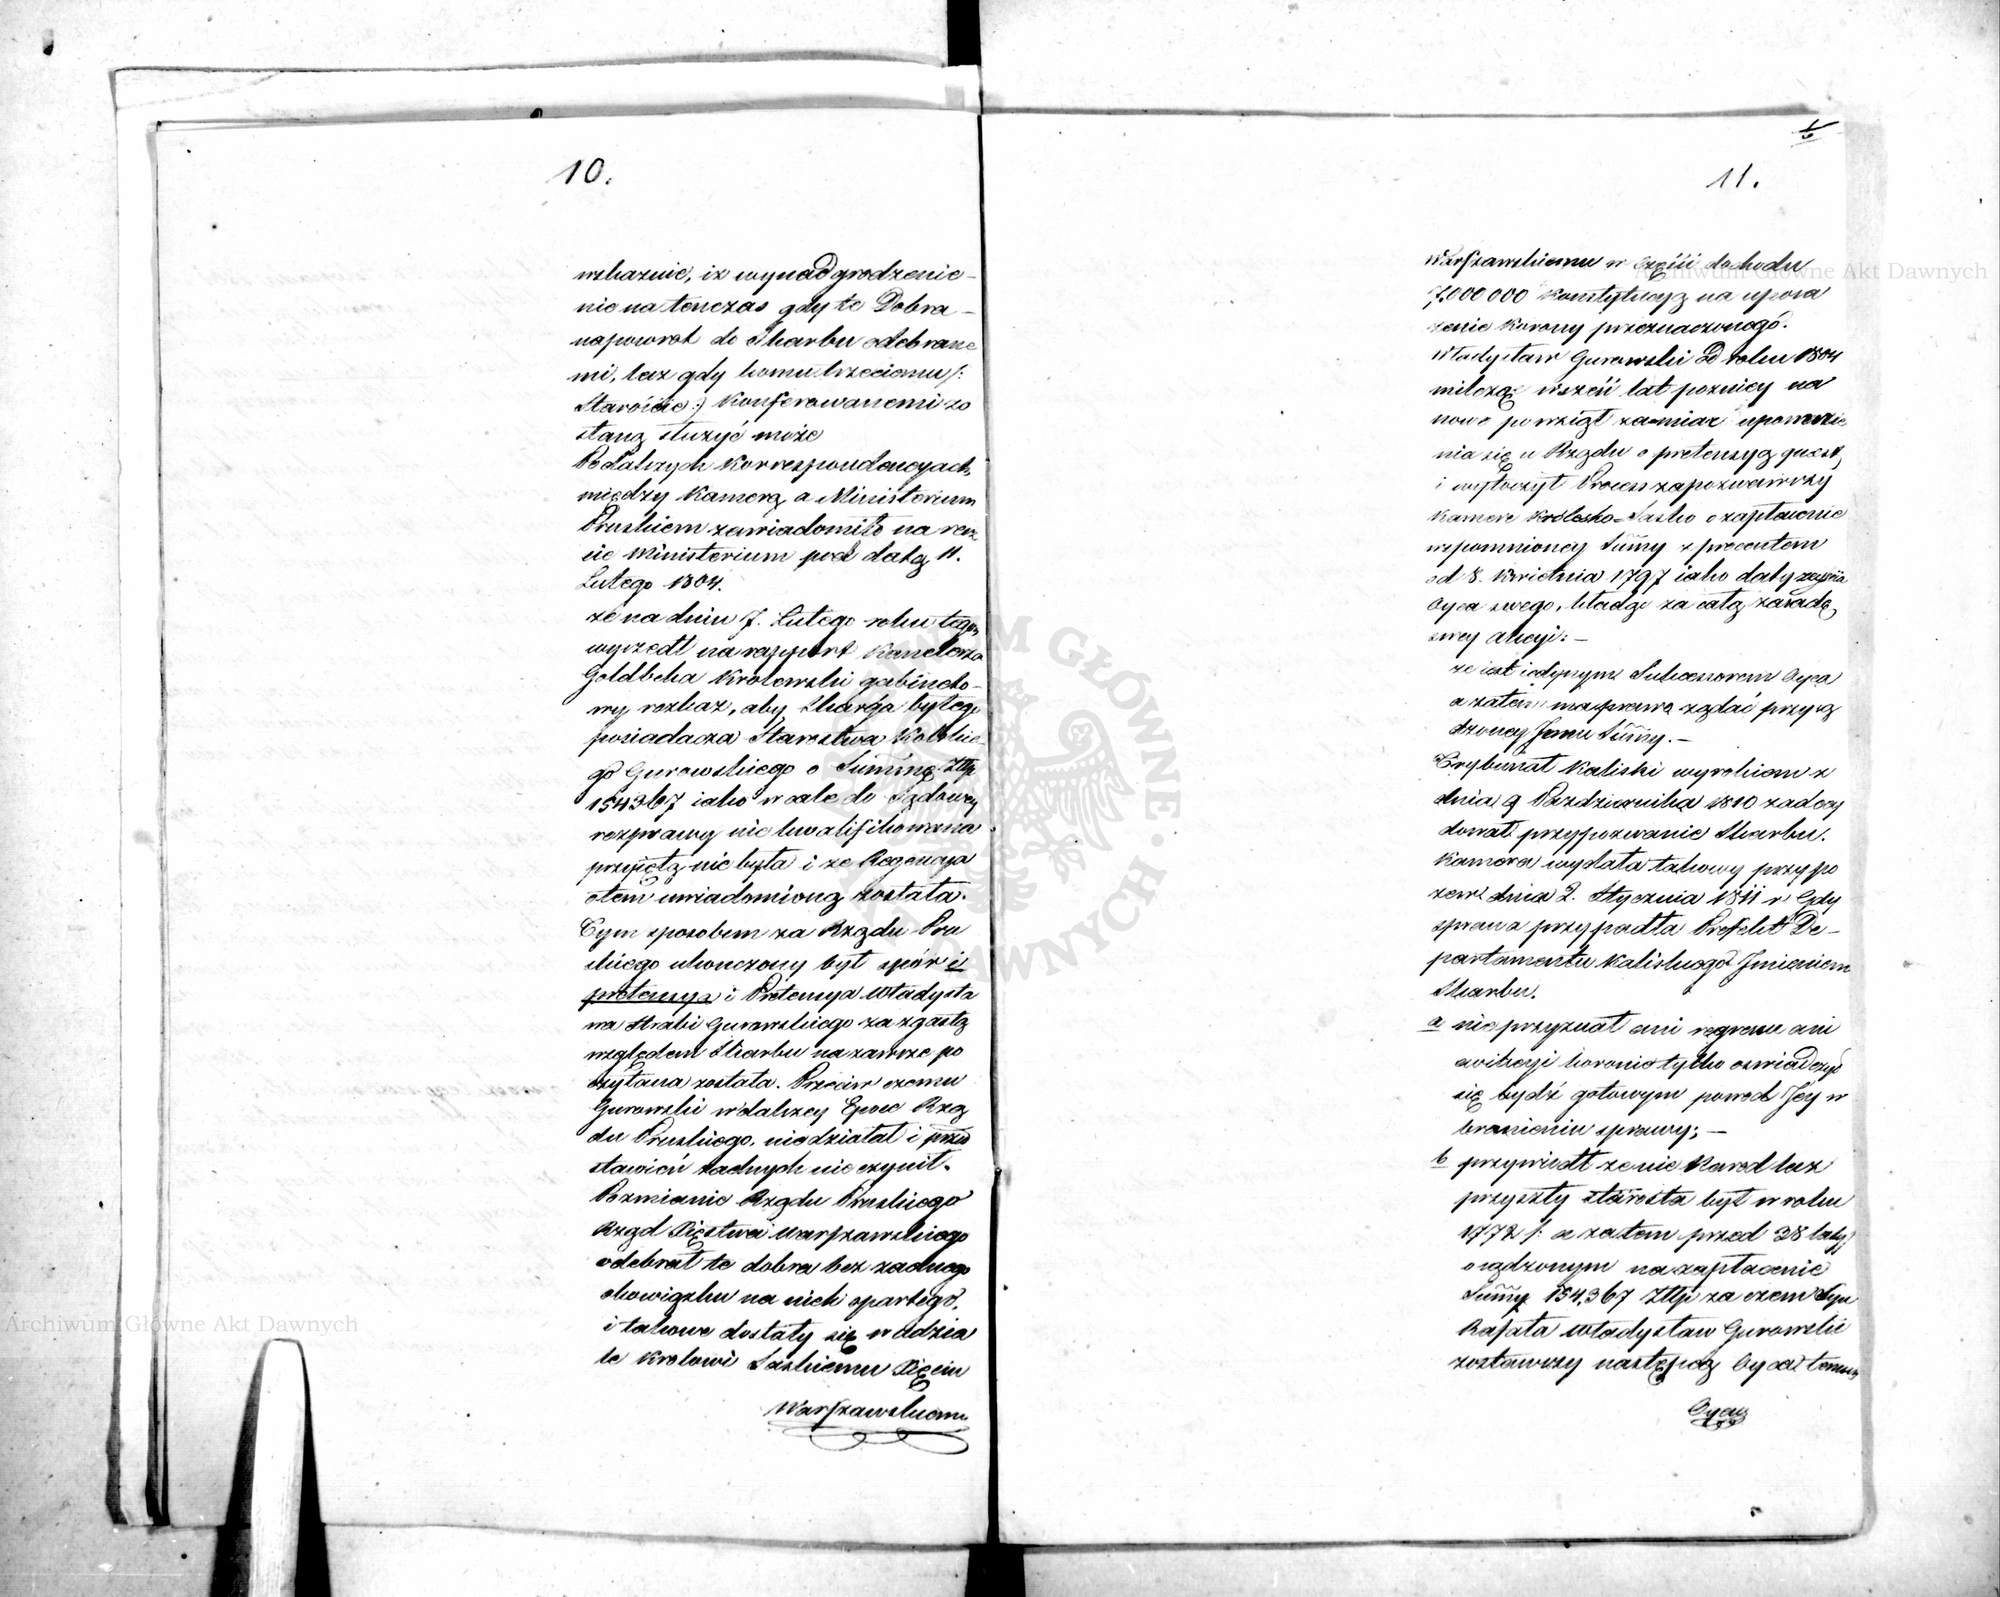 10.
wskaznie, iż wynadgrodzenie
nie natenczas gdy te Dobra
napowrot do Skarbu odebrane
mi, lecz gdy komu trzeciemu /:
Staroście :/ konferowanemi zo
staną służyć może
Po dalszych korrespondencyach
między Kamerą a Ministerium
Pruskiem zawiadomiło na resz
cie Ministerium pod datą 11.
Lutego 1804.
że na dniu 7. Lutego roku tegoż
wyszedł na rapport Kanclerza
Goldbeka Krolewski gabineto-
wy rozkaz, aby skarga byłego
posiadacza Starostwa Kolskie
go Gurowskiego o Summę Złłp
154367 iako wcale do Sądowey
rozprawy nie kwalifikowana
przyiętą nie była i że Regencya
otem uwiadomioną została.
Tym sposobem za Rządu Pru
skiego ukonczony był spór i
pretensya i Pretensya Władysła
wa Hrabi Gurowskiego za zgasłą
względem Skarbu na zawsze po
czytana została. Przeciw czemu
Gurowski w dalszey Epoce Rzą
du Pruskiego, niedziałał i przed
stawień żadnych nie czynił.
Po zmianie Rządu Pruskiego
Rząd Xięstwa Warszawskiego
odebrał te dobra bez żadnego
obowiązku na nich opartego,
i takowe dostały się w udzia
le Krolowi Saskiemu Xięciu
Warszawskiemu
11.
Warszawskiemu w części dochodu
7,000 000 Konstytucyą na uposa
żenie Korony przeznaczonego.
Władysław Gurowski od roku 1804
milcząc w sześć lat pozniey na
nowo powziął zamiar upomnie
nia się u Rządu o pretensyą quest,
i wytoczył Proces zapozwawszy
Kamerę Krolesko-Saską o zapłacenie
wspomnioney Summy z procentem
od 8. Kwietnia 1797 iako daty zeyścia
Oyca swego, kładąc za całą zasadę
swey akcyi: —
że iest iedynym Sukcessorem Oyca
a zatem ma prawo żądać przysą
dzoney Jemu Summy. —
Trybunał Kaliski wyrokiem z
dnia 9 Pazdziernika 1810 zadecy
dował przypozwanie Skarbu.
Kamera wydała takowy przypo
zew dnia 2. Stycznia 1811 r Gdy
sprawa przypadła Prefekt De-
partamentu Kaliskiego Jmieniem
Skarbu.
a nie przyznał ani regressu ani
ewikcyi koronie tylko oswiadczył
się bydź gotowym powod Jey w
bronieniu sprawy; —
b przywiodł że nie Narod lecz
przyszły starosta był w roku
1772 /: a zatem przed 38 laty :/
osądzonym na zapłacenie
Summy 154,367 Złłp za czem Syn
Rafała Władysław Gurowski
zostawszy następcą Oyca temuż
Oycu